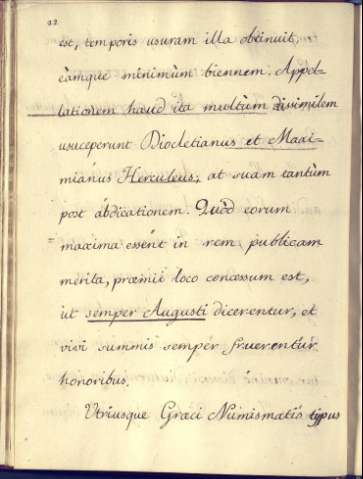 22
est, temporis usuram illa obtinuit,
eàmque minimùm biennem. Appel-
lationem haud ita multùm dissimilem
usuceperunt Diocletianus et Maxi-
miánus Herculeus, at suam tantùm
post ábdicationem. Quòd eorum
maxima essent in rem publicam
merita, præmii loco concessum est,
ut semper Augusti dicerentur, et
vivi summis semper fruerentur
honoribus.
Utriusque Græci Numismatis typus